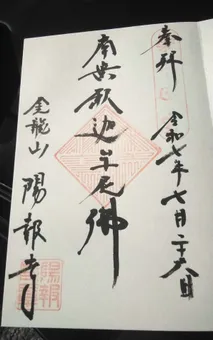 奉拝
令和七年七月二十六日
南無釈迦牟尼佛
金龍山 陽報寺